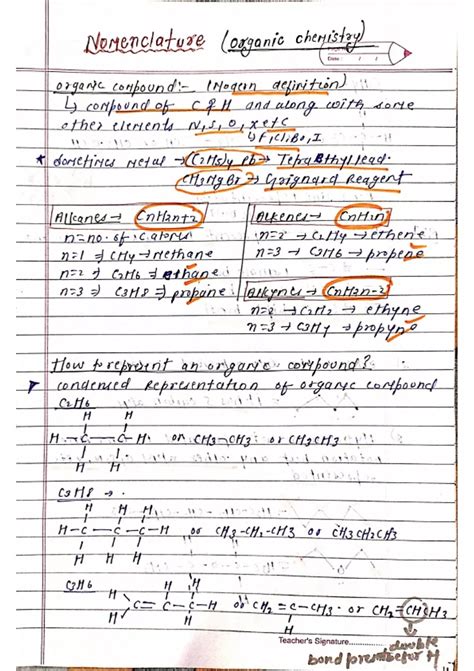 Nomenclature (organic chemistry)
Date : / /
organic compound:- (Modern definition)
↳ compound of C & H and along with some
other elements N, S, O, x etc
↳ F, Cl, Br, I
* Sometimes metal → (C2H5)4 Pb → Tetra Ethyl lead.
CH3MgBr → Grignard Reagent
Alkanes → CnH2n+2
n = no. of C atoms
n=1 → CH4 → Methane
n=2 → C2H6 → ethane
n=3 → C3H8 → propane
Alkenes → CnH2n
n=2 → C2H4 → ethene
n=3 → C3H6 → propene
Alkynes → CnH2n-2
n=2 → C2H2 → ethyne
n=3 → C3H4 → propyne
How to represent an organic compound?
condensed Representation of organic compound
C2H6
H H
H - C - C - H. or CH3-CH3 or CH3CH3
H H
C3H8 →
H H H
H-C-C-C-H or CH3-CH2-CH3 or CH3CH2CH3
H H H
C3H6
H H H
C = C - C - H or CH2 = C - CH3 or CH2=CHCH3
H H H
Teacher's Signature
double
bond present before H